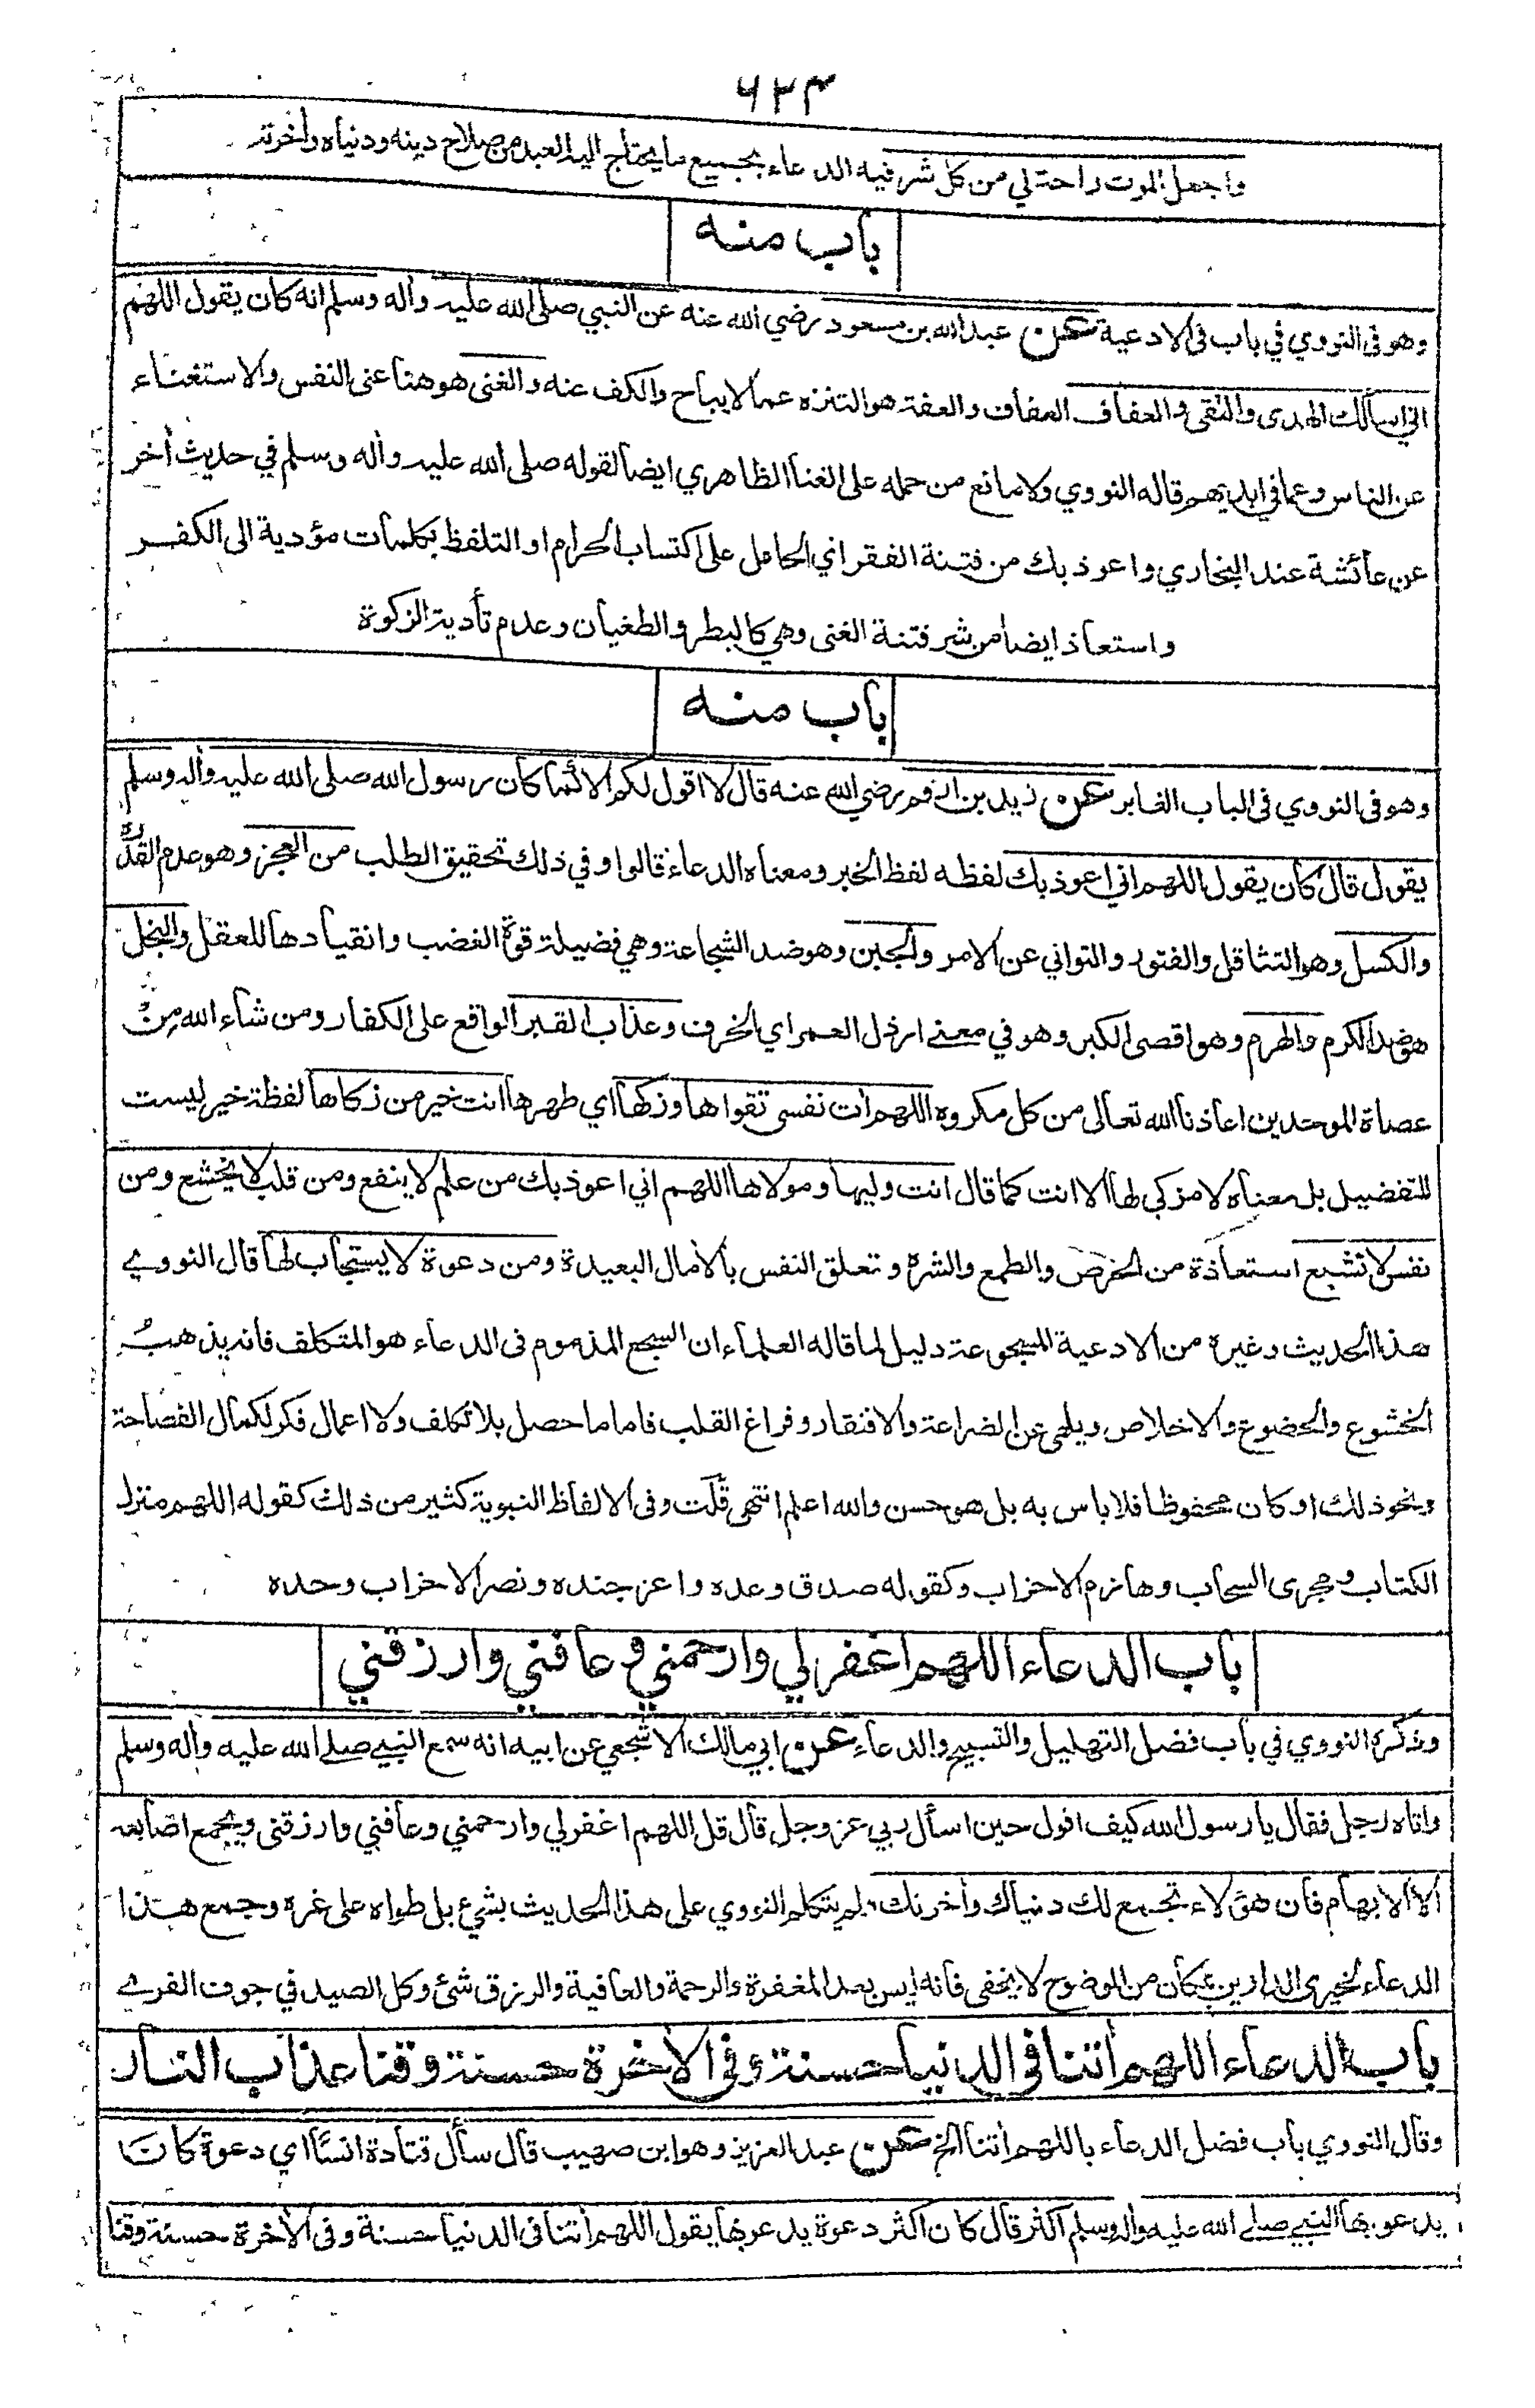 ٦٢٣
واجعل الموت راحة لي من كل شر فيه الدعاء بجميع ما يحتاج اليه العبد من صلاح دينه ودنياه واخرته
باب منه
وهو في النووي في باب في الادعية عن عبد الله بن مسعود رضي الله عنه عن النبي صلى الله عليه واله وسلم انه كان يقول اللهم
اني اسألك الهدى والتقى والعفاف العفاف والعفة هو التنزه عما لا يباح والكف عنه والغنى هو هنا غنى النفس والاستغناء
عن الناس وعما في ايديهم قاله النووي ولا مانع من حمله على الغنا الظاهري ايضا لقوله صلى الله عليه واله وسلم في حديث أخر
عن عائشة عند البخاري واعوذ بك من فتنة الفقر اي الحامل على اكتساب الحرام او التلفظ بكلمات مؤدية الى الكفر
واستعاذ ايضا من شر فتنة الغنى وهي كالبطر والطغيان وعدم تأدية الزكوة
باب منه
وهو في النووي في الباب الغابر عن زيد بن ارقم رضي الله عنه قال لا اقول لكم الا كما كان رسول الله صلى الله عليه واله وسلم
يقول قال كان يقول اللهم اني اعوذ بك لفظه لفظ الخبر ومعناه الدعاء قالوا وفي ذلك تحقيق الطلب من العجز وهو عدم القدرة
والكسل وهو التثاقل والفتور والتواني عن الامر والجبن وهو ضد الشجاعة وهي فضيلة قوة الغضب وانقيادها للعقل والبخل
هو ضد الكرم والهرم وهو اقصى الكبر وهو في معنى ارذل العمر اي الخرف وعذاب القبر الواقع على الكفار ومن شاء الله من
عصاة الموحدين اعاذنا الله تعالى من كل مكروه اللهم ات نفسي تقواها وزكها اي طهرها انت خير من زكاها لفظة خير ليست
للتفضيل بل معناه لا مزكي لها الا انت كما قال انت وليها ومولاها اللهم اني اعوذ بك من علم لا ينفع ومن قلب لا يخشع ومن
نفس لا تشبع استعاذة من الحرص والطمع والشره وتعلق النفس بالأمال البعيدة ومن دعوة لا يستجاب لها قال النووي
هذا الحديث وغيره من الادعية المسجوعة دليل لما قاله العلماء ان السجع المذموم في الدعاء هو المتكلف فانه يذهب
الخشوع والخضوع والاخلاص ويلهي عن الضراعة والافتقار وفراغ القلب فاما ما حصل بلا تكلف ولا اعمال فكر لكمال الفصاحة
ونحو ذلك او كان محفوظا فلا باس به بل هو حسن والله اعلم انتهى قلت وفي الالفاظ النبوية كثير من ذلك كقوله اللهم منزل
الكتاب ومجرى السحاب وهازم الاحزاب وكقوله صدق وعده واعز جنده ونصر الاحزاب وحده
باب الدعاء اللهم اغفر لي وارحمني وعافني وارزقني
وذكره النووي في باب فضل التهليل والتسبيح والدعاء عن ابي مالك الاشجعي عن ابيه انه سمع النبي صلى الله عليه واله وسلم
واتاه رجل فقال يا رسول الله كيف اقول حين اسأل ربي عز وجل قال قل اللهم اغفر لي وارحمني وعافني وارزقني ويجمع اصابعه
الا الابهام فان هؤلاء تجمع لك دنياك وأخرتك لم يتكلم النووي على هذا الحديث بشئ بل طواه على غره وجمع هذا
الدعاء لخيرى الدارين بمكان من الوضوح لا يخفى فانه ليس بعد المغفرة والرحمة والعافية والرزق شئ وكل الصيد في جوف الفرى
باب الدعاء اللهم أتنا في الدنيا حسنة وفي الأخرة حسنة وقنا عذاب النار
وقال النووي باب فضل الدعاء باللهم أتنا الخ عن عبد العزيز وهو ابن صهيب قال سأل قتادة انسا اي دعوة كان
يدعو بها النبي صلى الله عليه واله وسلم اكثر قال كان اكثر دعوة يدعو بها يقول اللهم أتنا في الدنيا حسنة وفي الأخرة حسنة وقنا